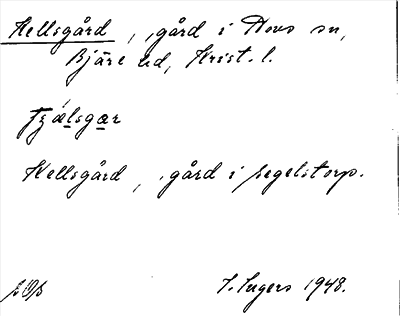 Hellsgård, gård i Hovs sn,
Bjäre hd, Krist. l.
Hellsgård, gård i Segelstorp.
I. Ingers 1948.